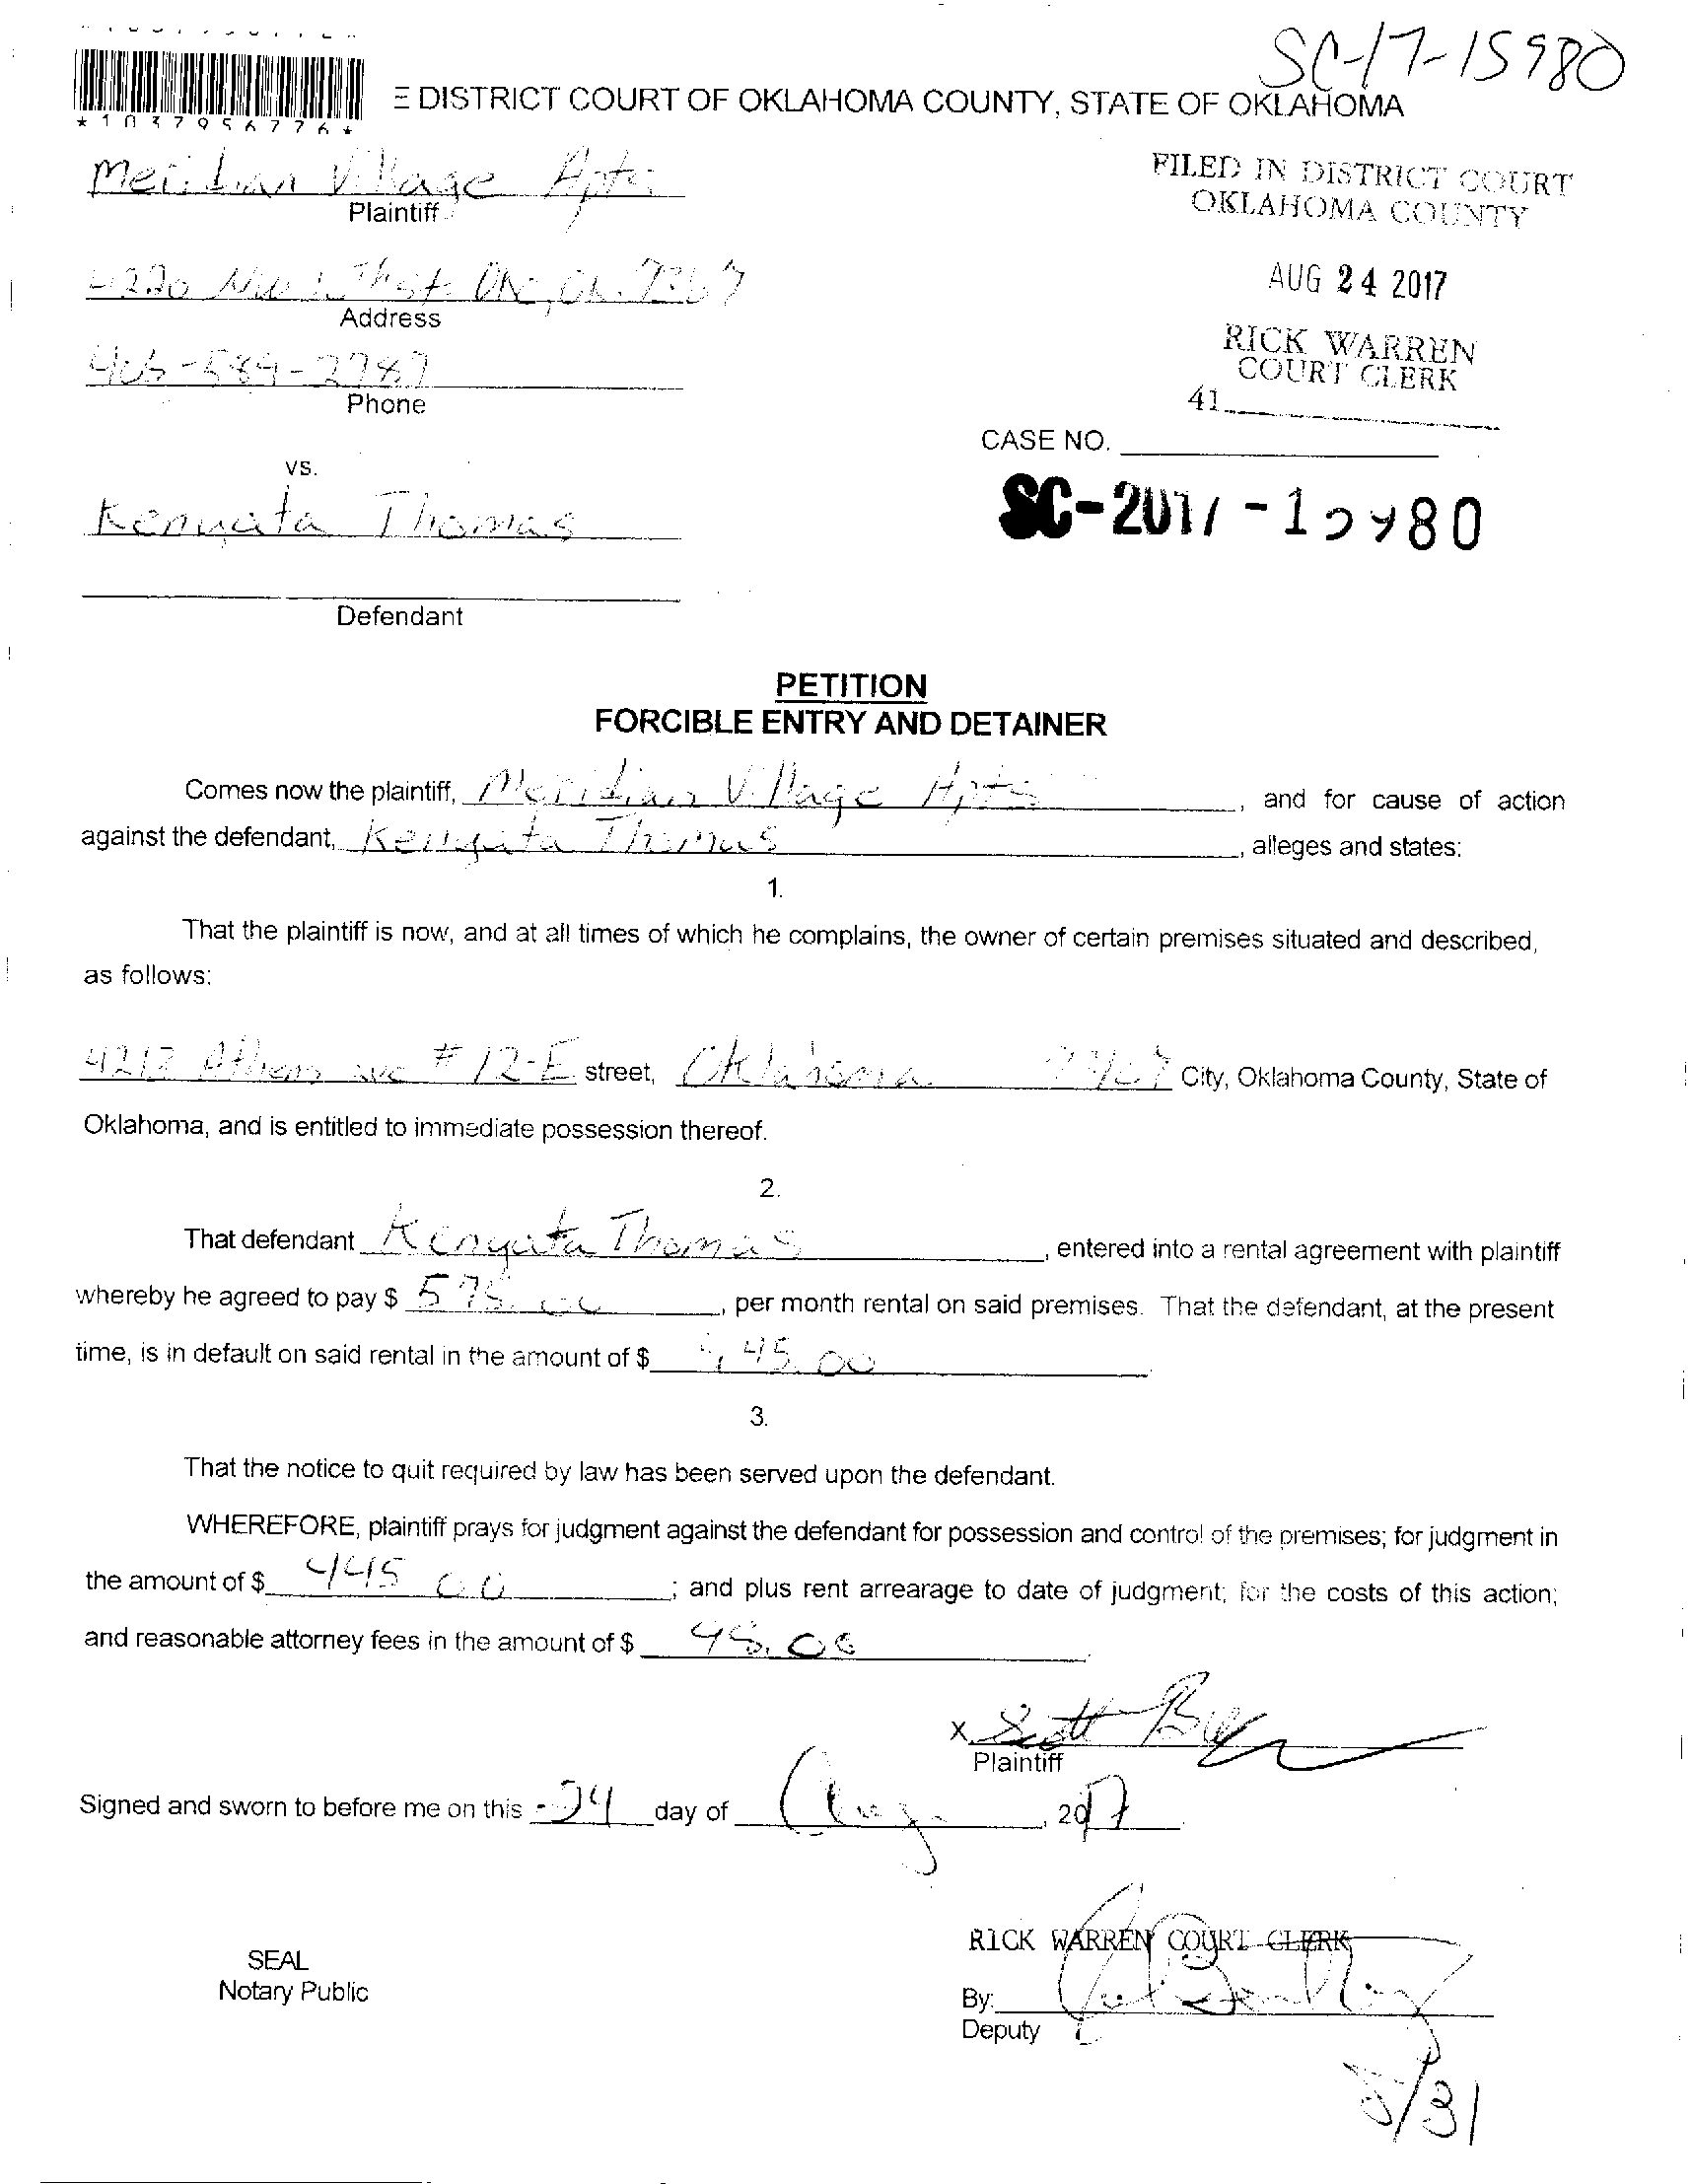 SC-17-15980
*1037956776*
E DISTRICT COURT OF OKLAHOMA COUNTY, STATE OF OKLAHOMA
Meridian Village Apts
Plaintiff
FILED IN DISTRICT COURT
OKLAHOMA COUNTY
AUG 24 2017
RICK WARREN
COURT CLERK
41
4220 NW
Address
405-589-2787
Phone
CASE NO.
SC-2017-15980
vs.
Kenyata Thomas
Defendant
PETITION
FORCIBLE ENTRY AND DETAINER
Comes now the plaintiff, Meridian Village Apts, and for cause of action
against the defendant, Kenyata Thomas, alleges and states:
1.
That the plaintiff is now, and at all times of which he complains, the owner of certain premises situated and described,
as follows:
4212 Athens ave #12-E street, Oklahoma City, Oklahoma County, State of
Oklahoma, and is entitled to immediate possession thereof.
2.
That defendant Kenyata Thomas, entered into a rental agreement with plaintiff
whereby he agreed to pay $ 575.00, per month rental on said premises. That the defendant, at the present
time, is in default on said rental in the amount of $ 445.00
3.
That the notice to quit required by law has been served upon the defendant.
WHEREFORE, plaintiff prays for judgment against the defendant for possession and control of the premises; for judgment in
the amount of $ 445 00; and plus rent arrearage to date of judgment; for the costs of this action;
and reasonable attorney fees in the amount of $
x Scott
Plaintiff
Signed and sworn to before me on this 24 day of Aug, 2017
SEAL
Notary Public
RICK WARREN COURT CLERK
By:
Deputy
8/31